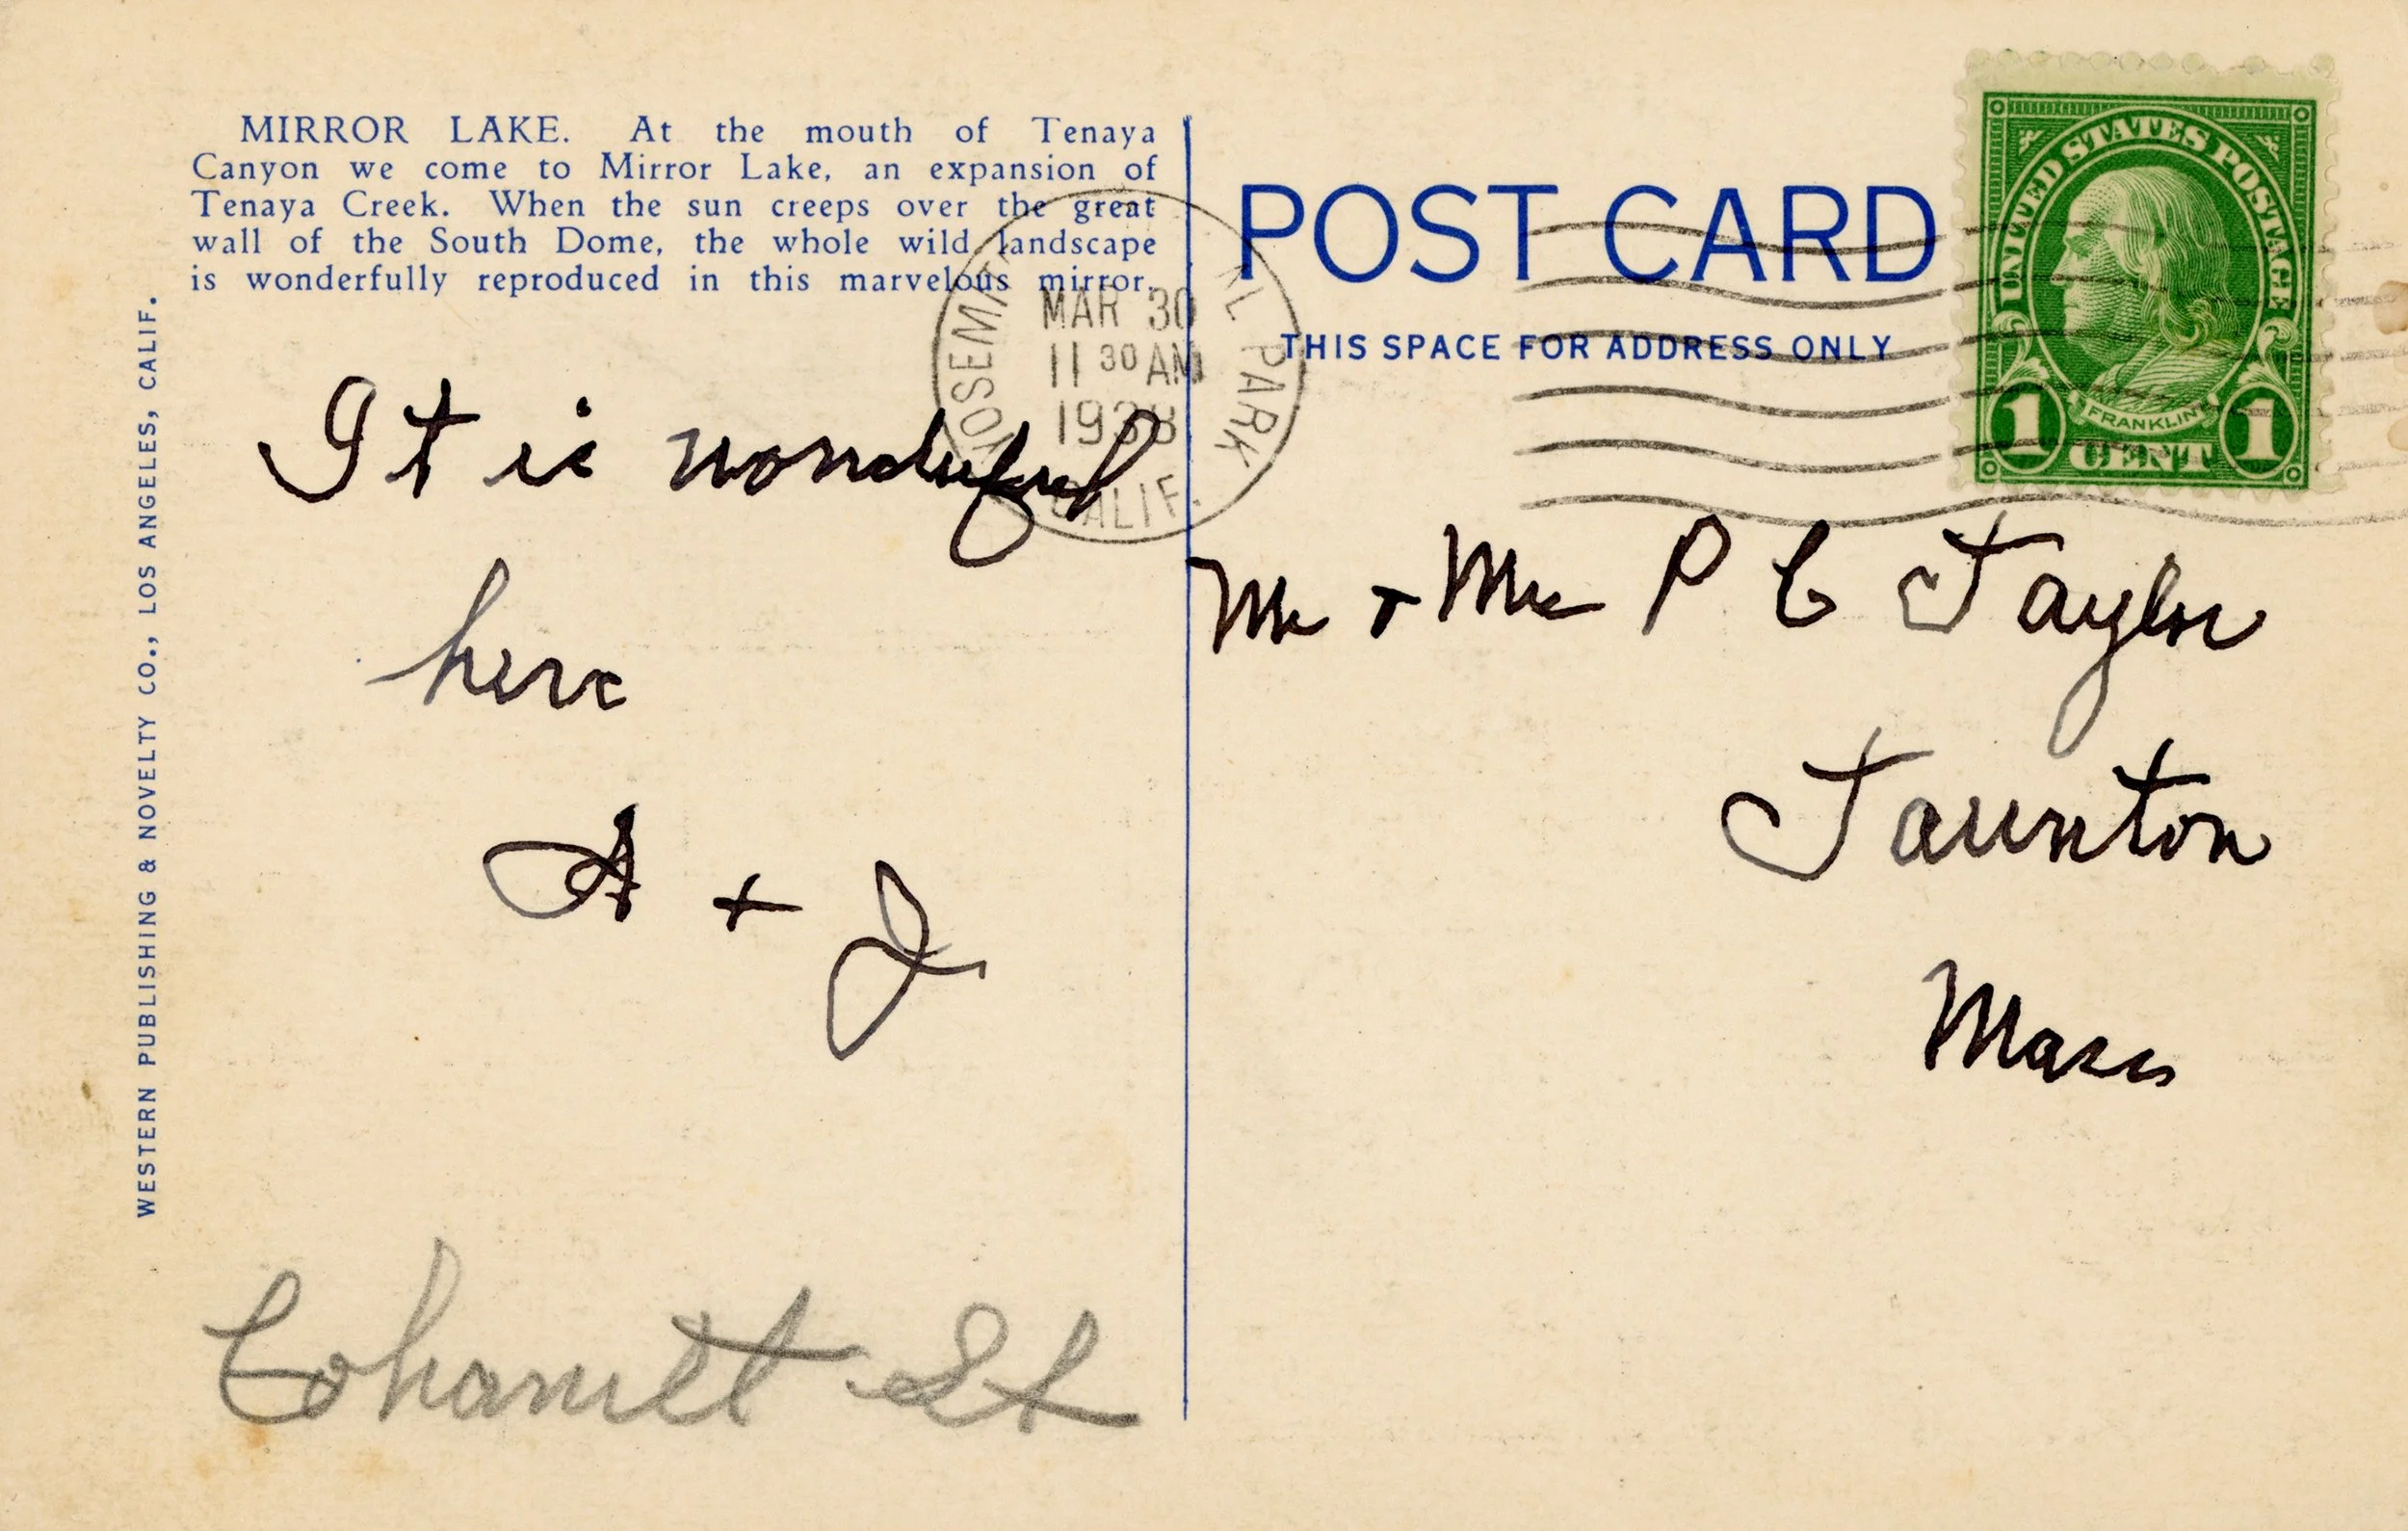 MIRROR LAKE. At the mouth of Tenaya
Canyon we come to Mirror Lake, an expansion of
Tenaya Creek. When the sun creeps over the great
wall of the South Dome, the whole wild landscape
is wonderfully reproduced in this marvelous mirror.
WESTERN PUBLISHING & NOVELTY CO., LOS ANGELES, CALIF.
It is wonderful
here
A + J
Cohannet St
YOSEMITE NAL PARK
MAR 30
11 30 AM
1938
CALIF.
POST CARD
THIS SPACE FOR ADDRESS ONLY
UNITED STATES POSTAGE
FRANKLIN
1 CENT 1
Mr + Mrs P C Taylor
Taunton
Mass